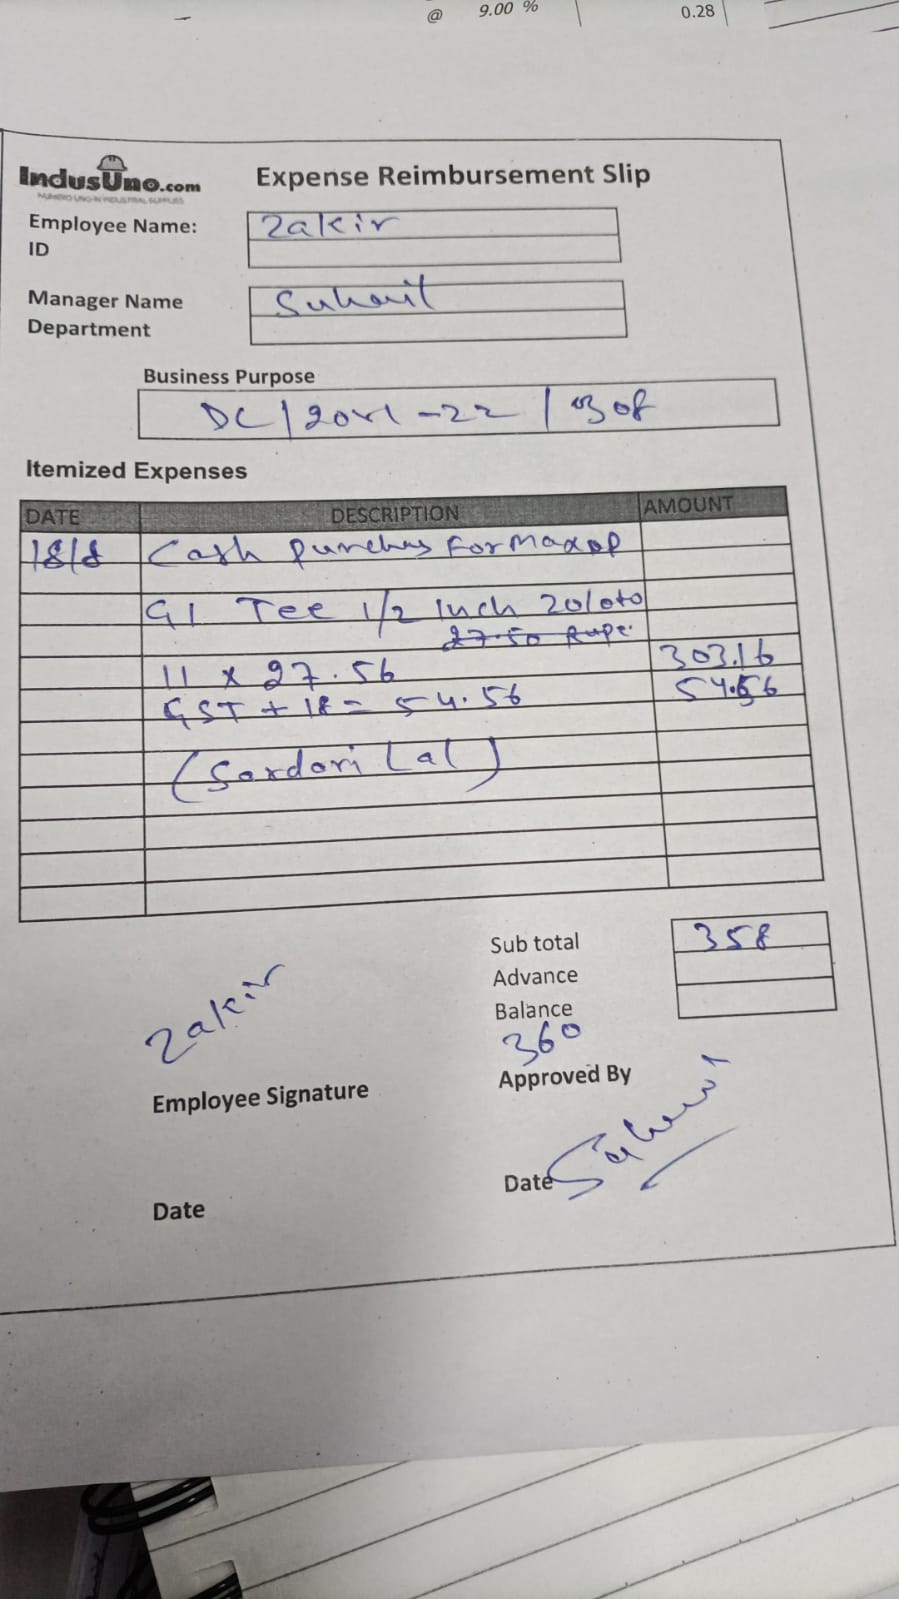 @ 9.00 % 0.28
IndusUno.com
NUMERO UNO IN INDUSTRIAL SUPPLIES
Expense Reimbursement Slip
Employee Name: Zakir
ID
Manager Name Suhail
Department
Business Purpose
DC/2021-22/308
Itemized Expenses
DATE DESCRIPTION AMOUNT
18/8 Cash Purchas For Maxop
GI Tee 1/2 Inch Zoloto
27.50 Rupe.
11 x 27.56 303.16
GST + 18 = 54.56 54.56
(Sardari Lal)
Sub total 358
Advance
Balance
360
Zakir
Employee Signature
Approved By
Suhail
Date
Date